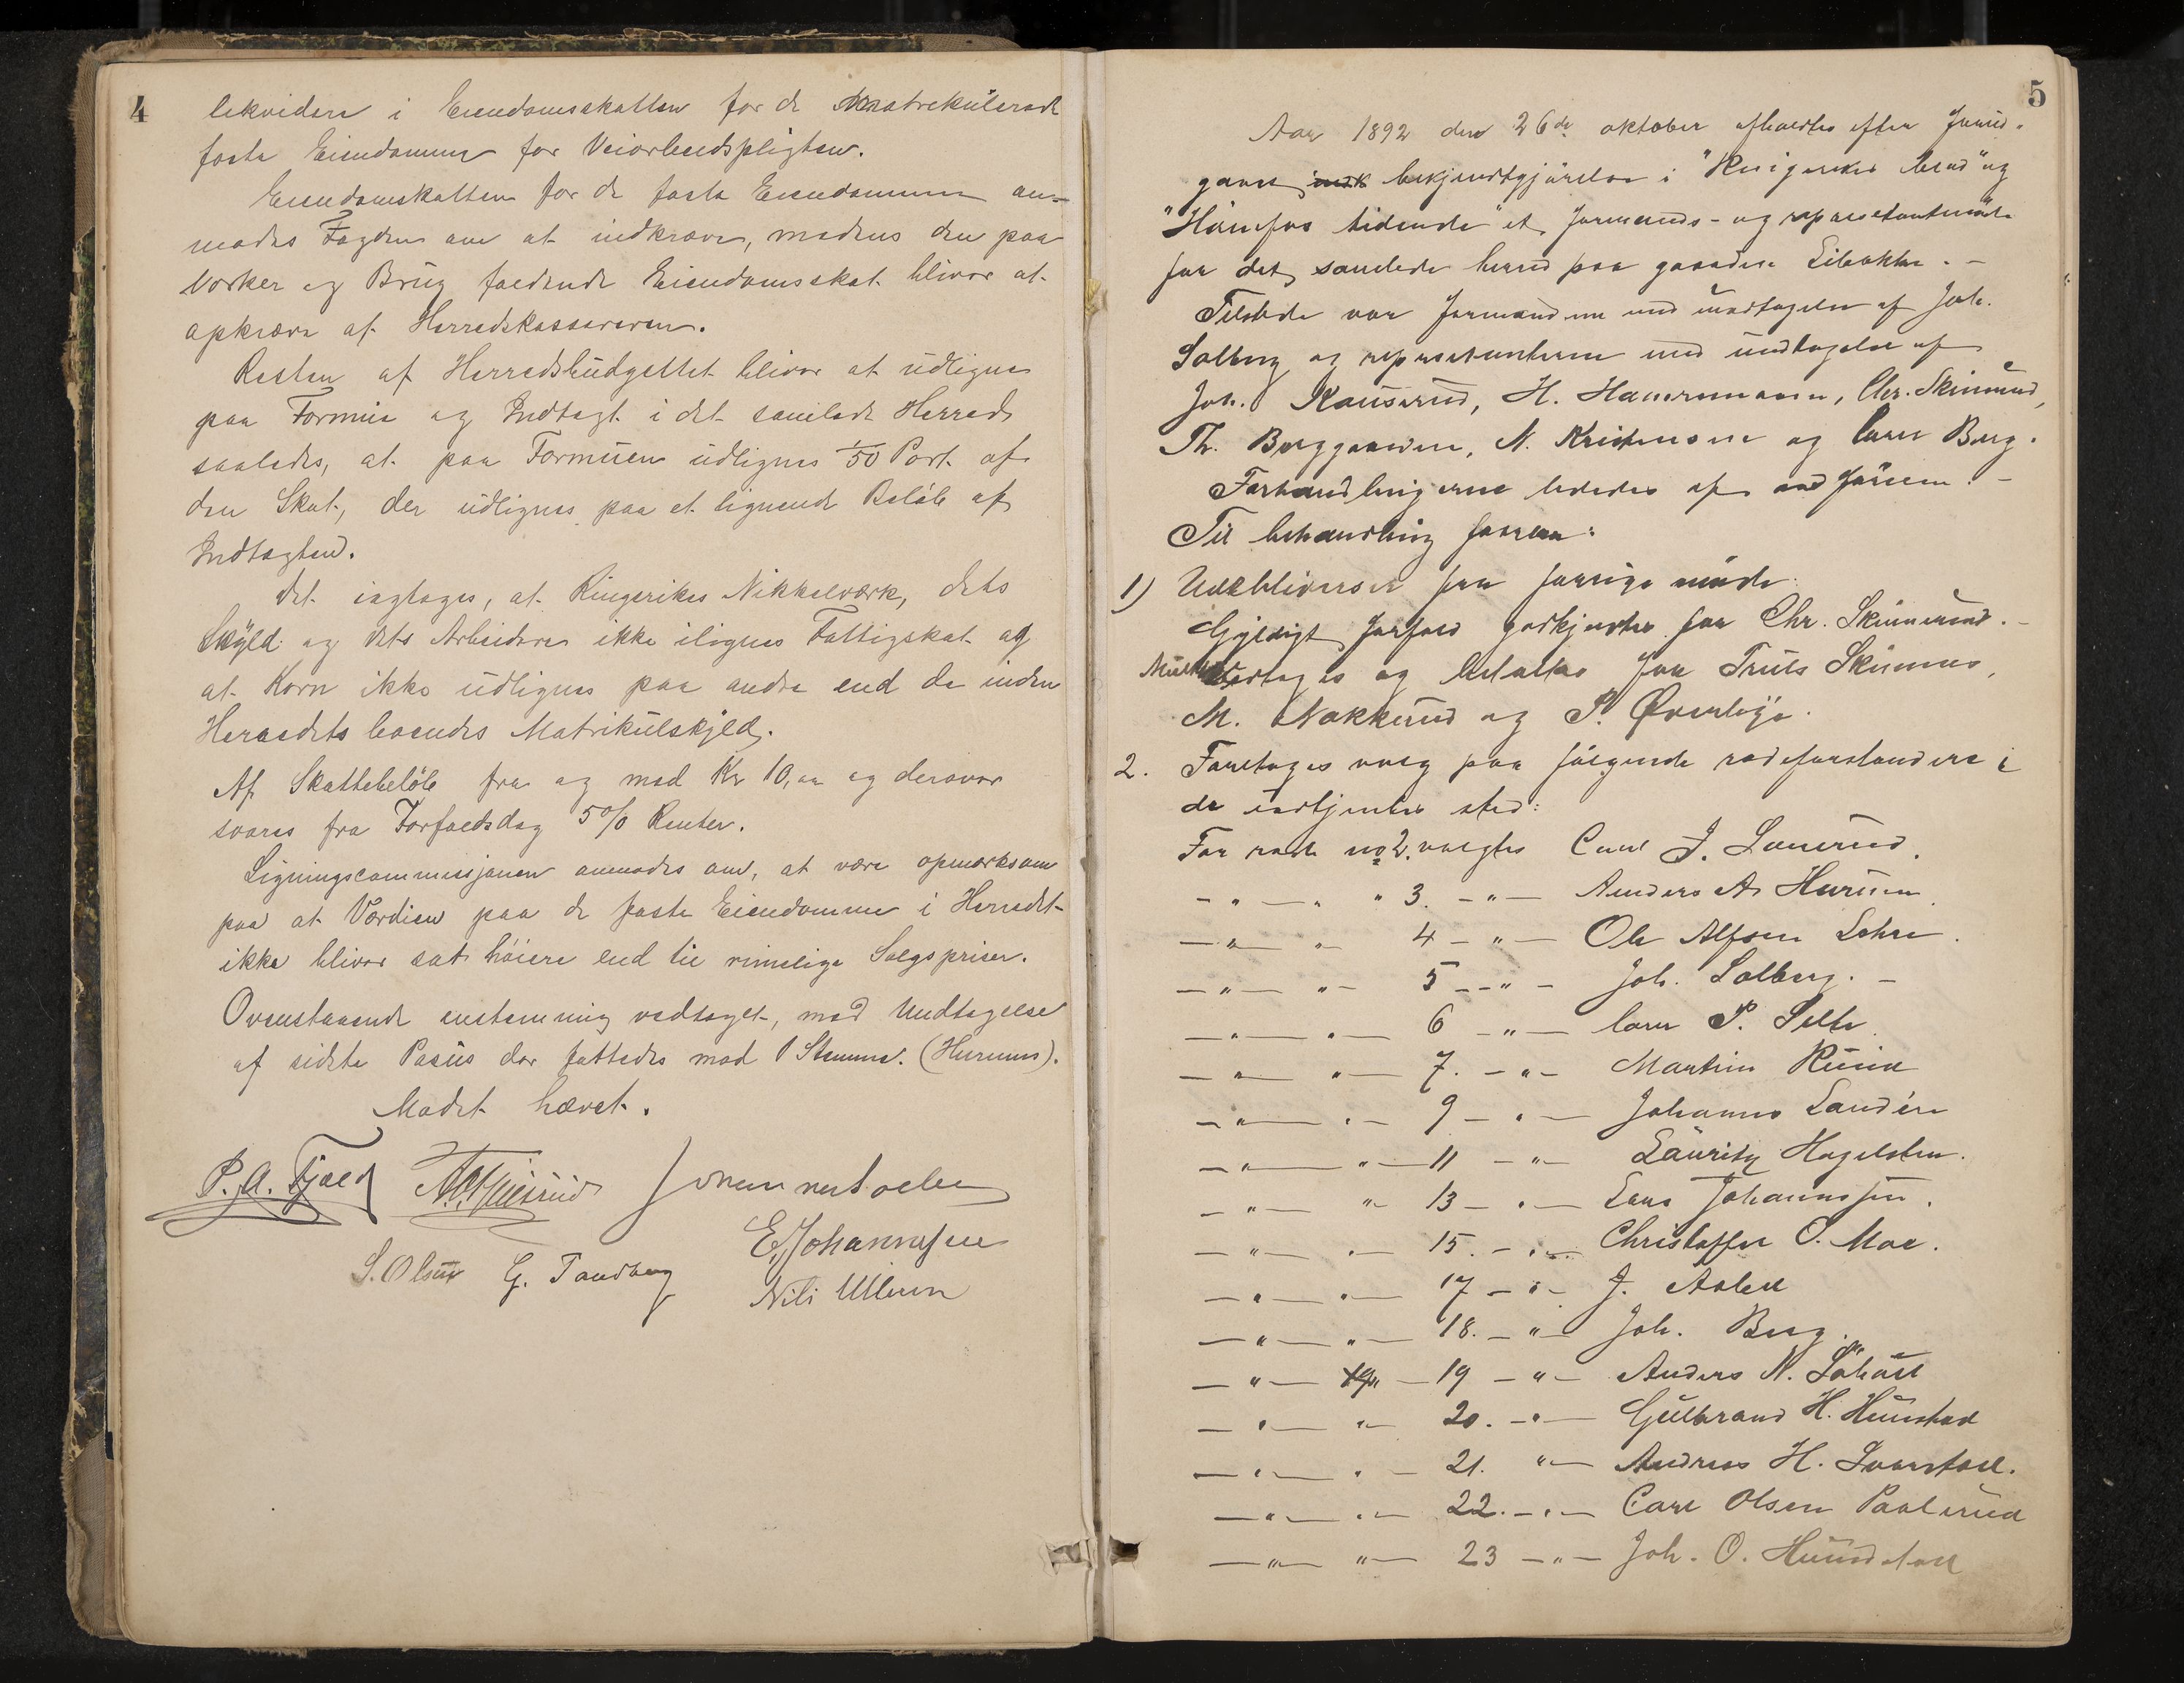 4
likvidere i Eiendomsskatten for de Matrikulerede
faste Eiendomme for Veiarbeidspligten.
Eiendomsskatten for de faste Eiendomme an-
modes Fogden om at indkræve, medens den paa
Værker og Brug faldende Eiendomsskat bliver at
opkræve af Herredskassereren.
Resten af Herredsbudgettet bliver at udligne
paa Formue og Indtægt i det samlede Herred
saaledes, at paa Formuen udlignes 1/50 Part af
den Skat, der udlignes paa et lignende Beløb af
Indtægten.
Det iagtages, at Ringerikes Nikkelværk, dets
Skyld og dets Arbeidere ikke ilignes Fattigskat og
at Korn ikke udlignes paa andre end de inden
Herredets boendes Matrikulskyld.
Af Skattebeløb fra og med Kr 10,00 og derover
svares fra Forfaldsdag 5% Renter.
Ligningscommissjonen anmodes om, at være opmærksom
paa at Værdien paa de faste Eiendomme i Herredet
ikke bliver sat høiere end til rimelige Salgspriser.
Ovenstaaende enstemmig vedtaget, med Undtagelse
af sidste Pasus der fattedes mod 1 Stemme. (Hurums).
Mødet hævet.
P. A. Fjeld
S. Olsen G. Tandberg E. Johannesen
Nils Ullern
5
Aar 1892 den 26de oktober afholdtes efter forud-
gaaet bekjendtgjørelse i "Ringerikes blad" og
"Hønefos tidende" et formands- og repræsentantmøde
for det samlede herred paa gaarden Libakke. -
Tilstede var formændene med undtagelse af Joh.
Solberg og repræsentanterne med undtagelse af
Joh. Kauserud, H. Hanermann, Chr. Skinnerud,
Th. Berggaarden, N. Kristensen og Lars Berg.
Forhandlingerne lededes af ordføreren. -
Til behandling forelaa:
1) Udeblivelser fra forrige møde.
Gyldigt forfald godkjendtes for Chr. Skinnerud. -
Mulkt vedtages og betaltes for Truls Skinnes,
M. Nakkerud og P. Øverbye.
2. Foretages valg paa følgende rodeforstandere i
de udtjentes sted:
For rode no 2. valgtes Carl J. Lunerud.
— " — " " 3. — " — Anders A. Hurum.
— " — " — 4 — " — Ole Alfsen Lehre.
— " — " — 5 — " — Joh. Solberg. -
— " — " — 6 — " — Lars P. Selte.
— " — " — 7. — " — Martin Ruud
— " — " — 9 — " — Johannes Landén
— " — " — 11 — " — Lauritz Hagelsten.
— " — " — 13 — " — Lars Johannesen.
— " — " — 15. — " — Christoffer O. Moe.
— " — " — 17 — " — J. Asbell
— " — " — 18. — " — Joh. Berg.
— " — " — 19 — " — Anders N. Søhøll
— " — " — 20. — " — Gulbrand H. Hunstad
— " — " — 21. " — Andreas H. Svarstad.
— " — " — 22. — " — Carl Olsen Paalerud
— " — " — 23 — " — Joh. O. Hundstad